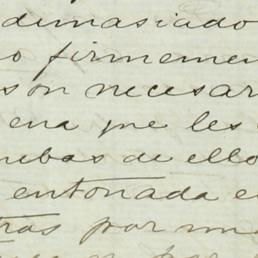 dimasiado
o firmemen
son necesar
ena que les
uebas de ello
entonada e
tras por un